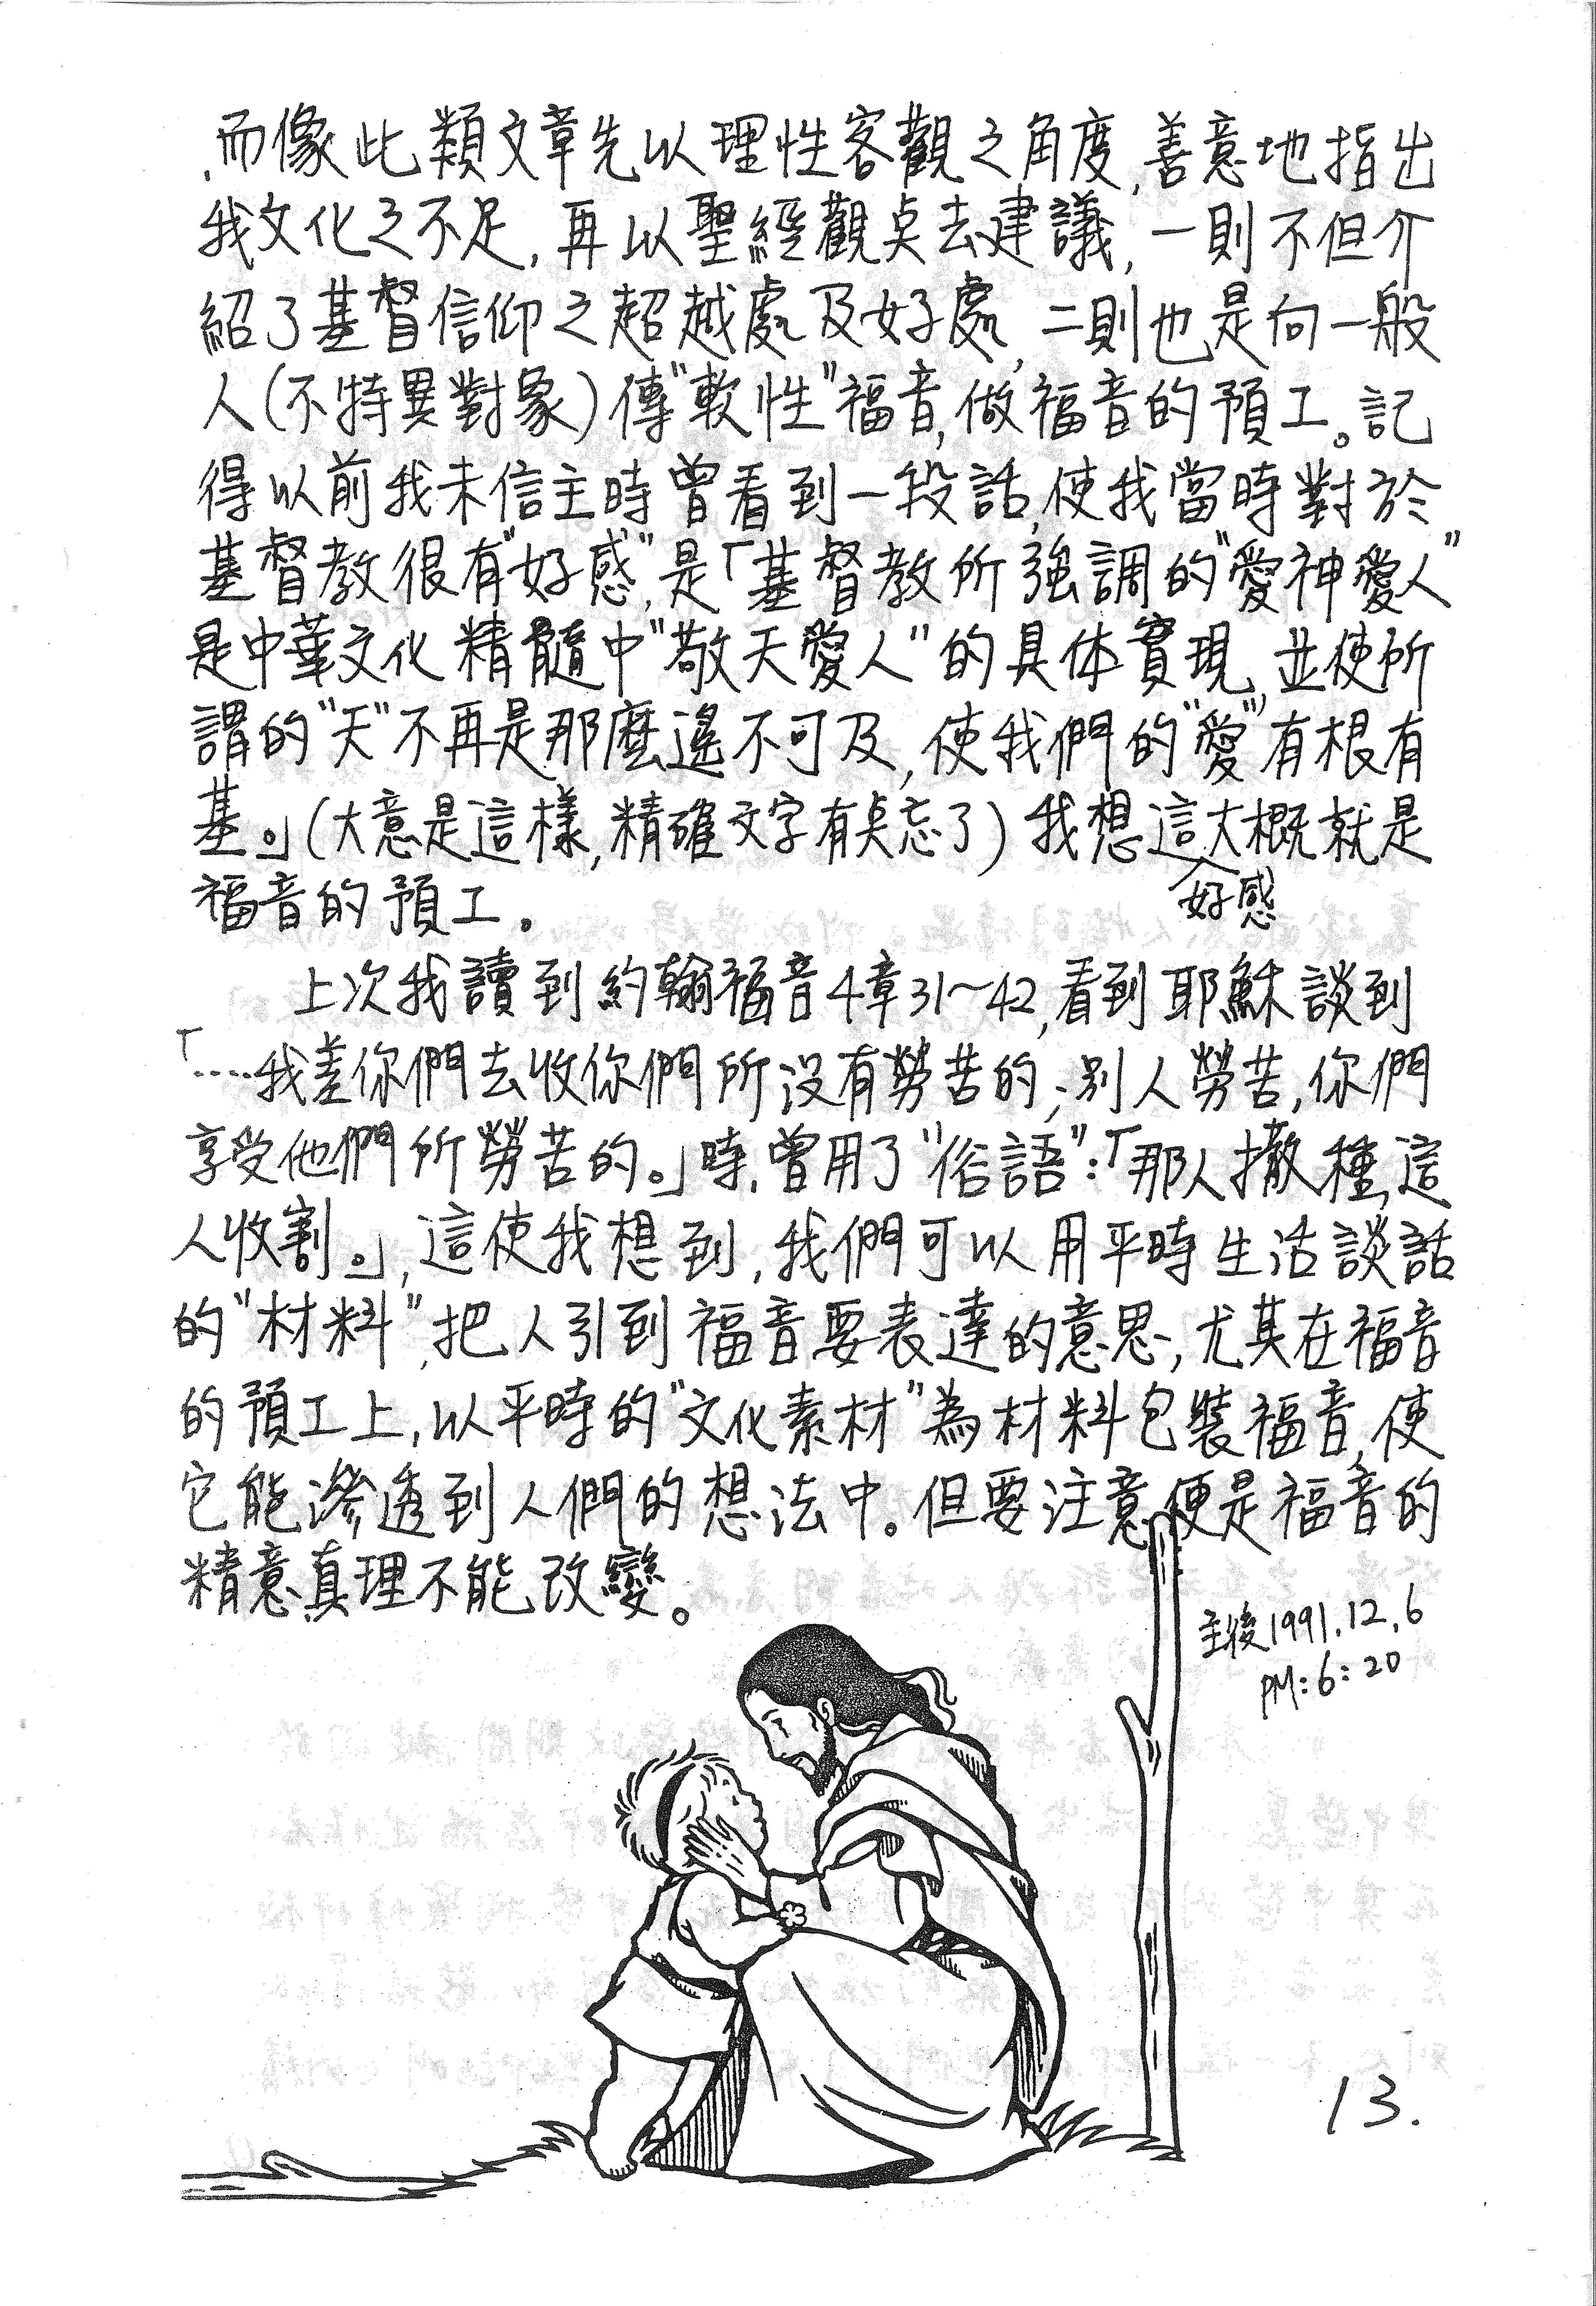 而像此類文章先以理性客觀之角度,善意地指出
我文化之不足,再以聖經觀点去建議,一則不但介
紹了基督信仰之超越處及好處,二則也是向一般
人(不特異對象)傳"軟性"福音,做福音的預工。記
得以前我未信主時曾看到一段話,使我當時對於
基督教很有"好感",是「基督教所強調的"愛神愛人"
是中華文化精髓中"敬天愛人"的具体實現,並使所
謂的"天"不再是那麼遙不可及,使我們的"愛"有根有
基。」(大意是這樣,精確文字有点忘了)我想這大概就是
好感
福音的預工。
上次我讀到約翰福音4章31~42,看到耶穌談到
「....我差你們去收你們所沒有勞苦的;別人勞苦,你們
享受他們所勞苦的。」時,曾用了"俗語":「那人撒種,這
人收割。」,這使我想到,我們可以用平時生活談話
的"材料",把人引到福音要表達的意思,尤其在福音
的預工上,以平時的"文化素材"為材料包裝福音,使
它能滲透到人們的想法中。但要注意,便是福音的
精意真理不能改變。
主後1991.12.6
PM:6:20
13.